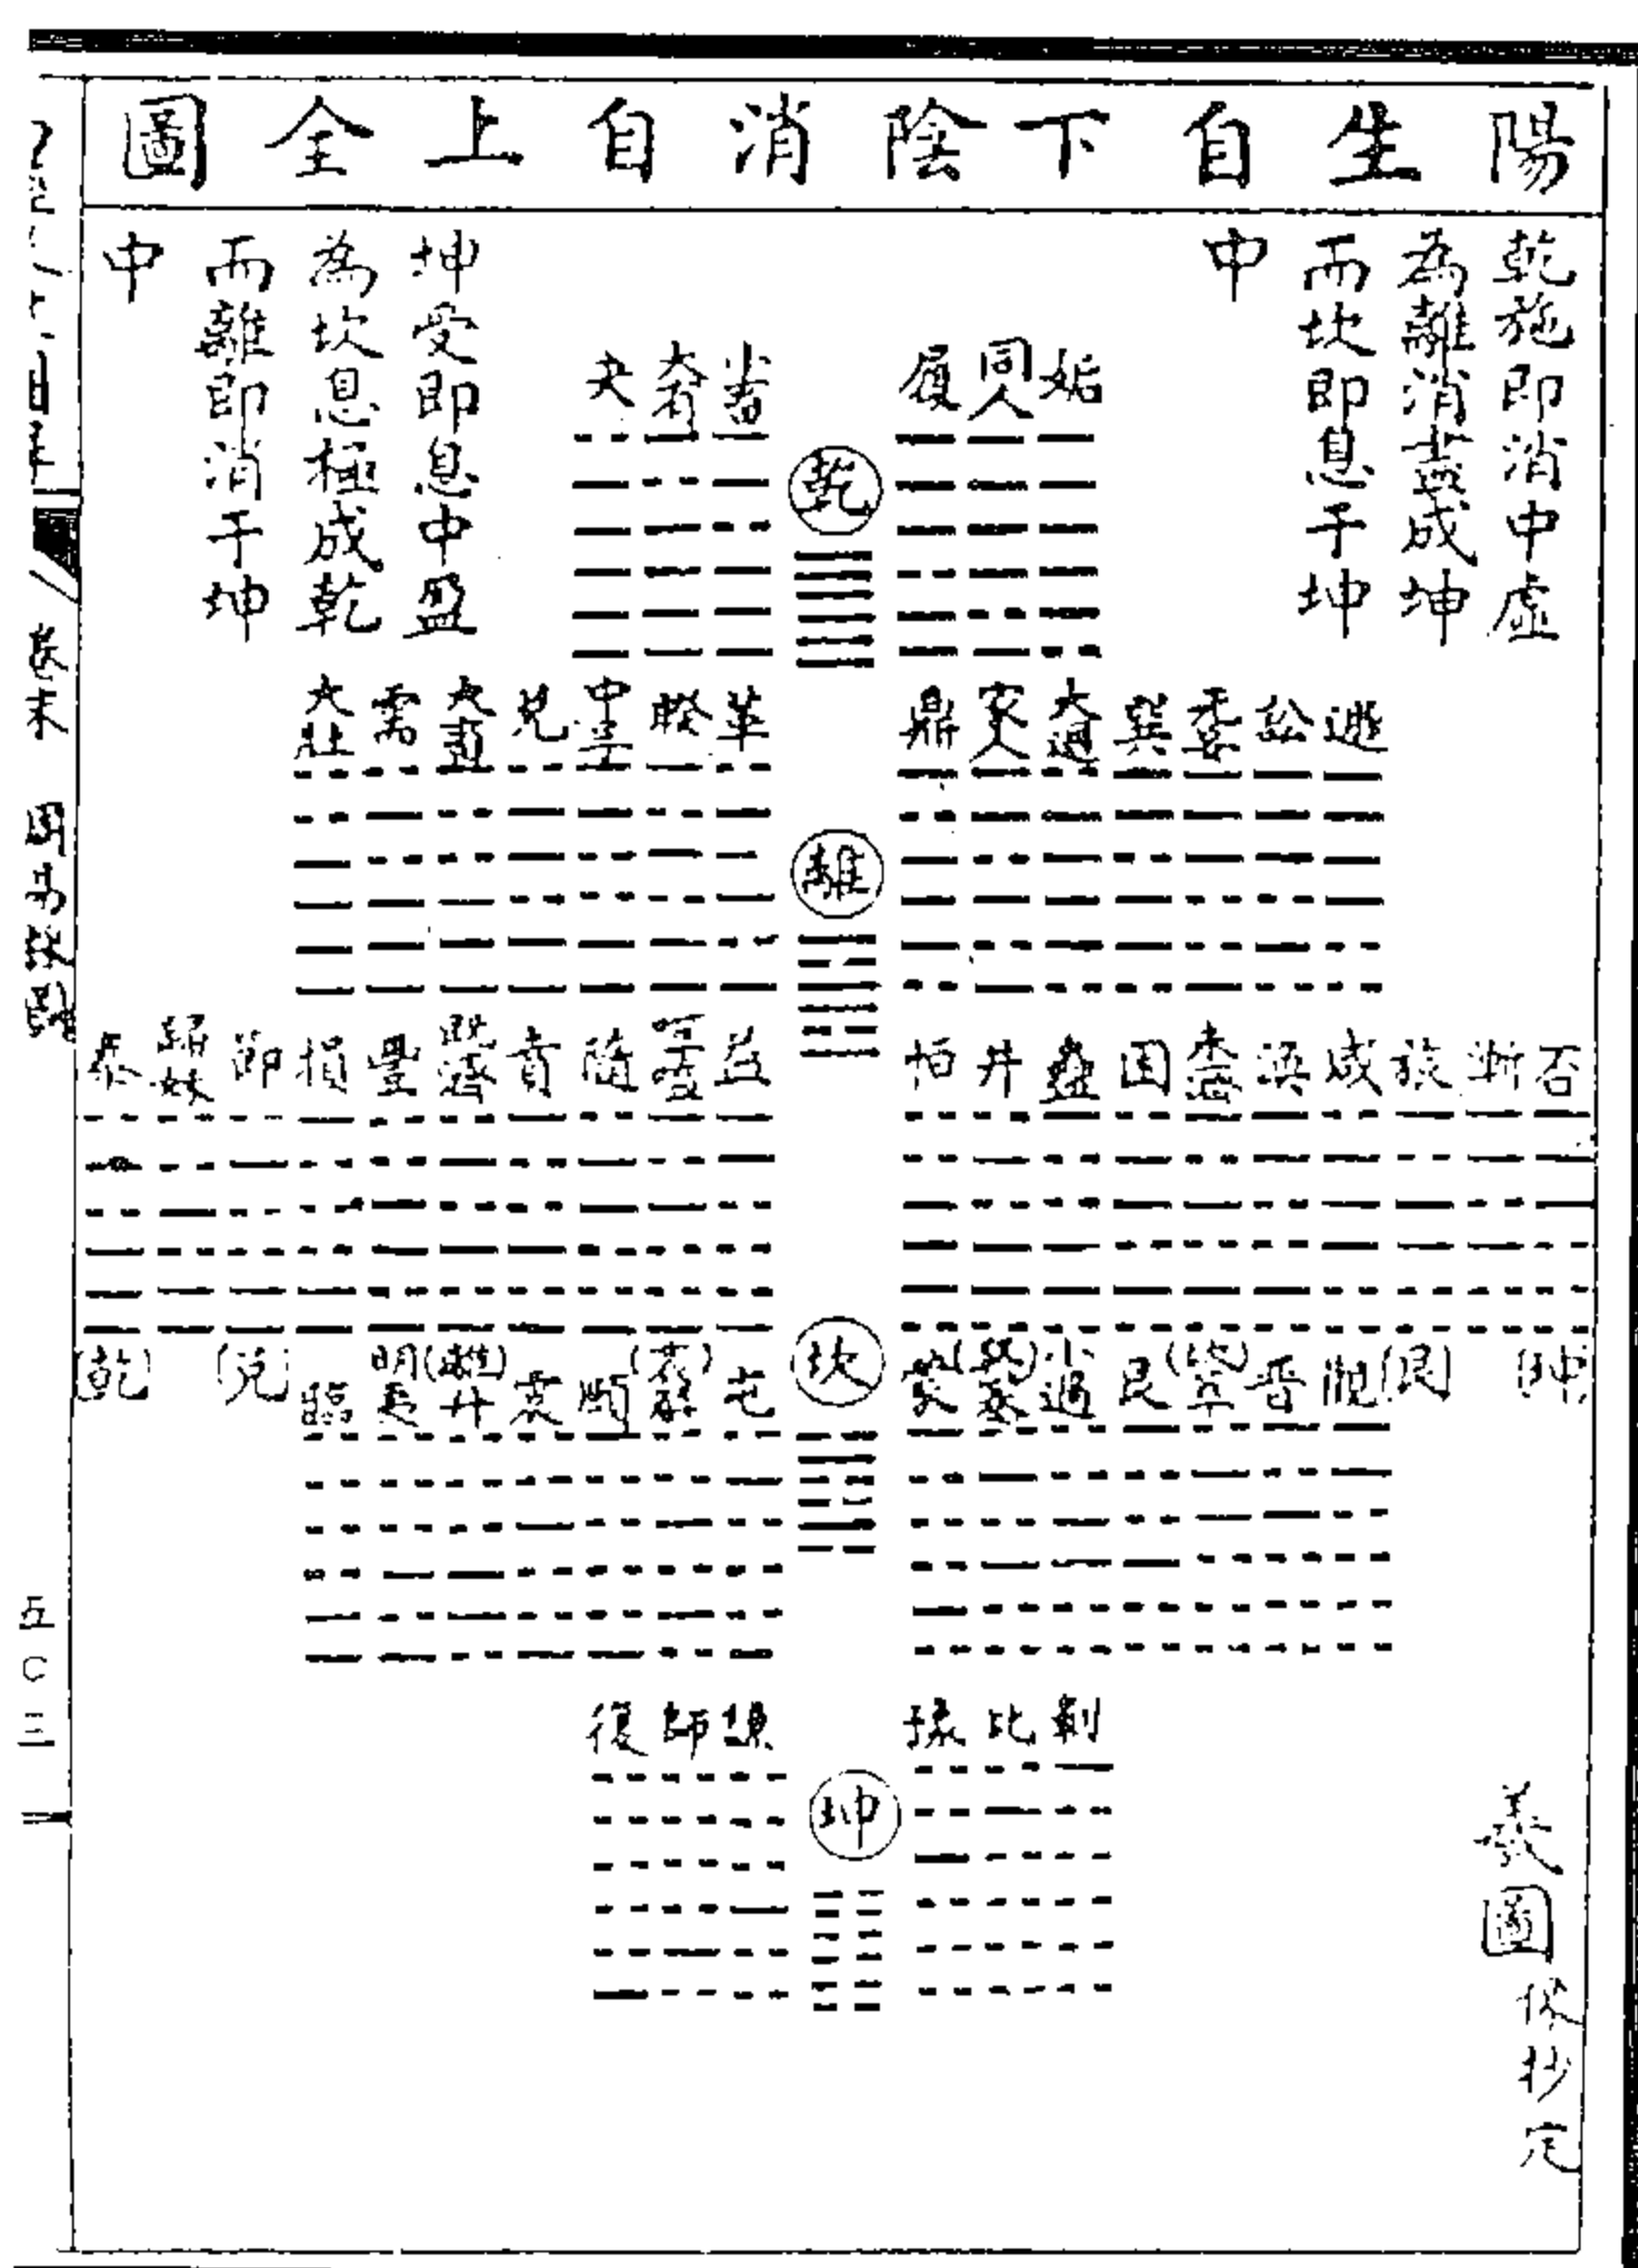 陽生自下陰消自上全圖
乾施即消中虛
為離消盡成坤
而坎即息于坤
中
坤受即息中盈
為坎息極成乾
而離即消于坤
中
姤 同人 履 乾 小畜 大有 夬
遯 訟 无妄 巽 大過 家人 鼎 離 革 睽 中孚 兌 大畜 需 大壯
否 漸 旅 咸 渙 未濟 困 蠱 井 恒 益 噬嗑 隨 賁 既濟 豐 損 節 歸妹 泰
(坤) (艮) 觀 晉 萃 艮 小過 蹇 蒙 坎 屯 解 頤 震 升 明夷 臨 (兌) (乾)
剝 比 豫 坤 謙 師 復
義圖
依抄定
卷末
五〇三